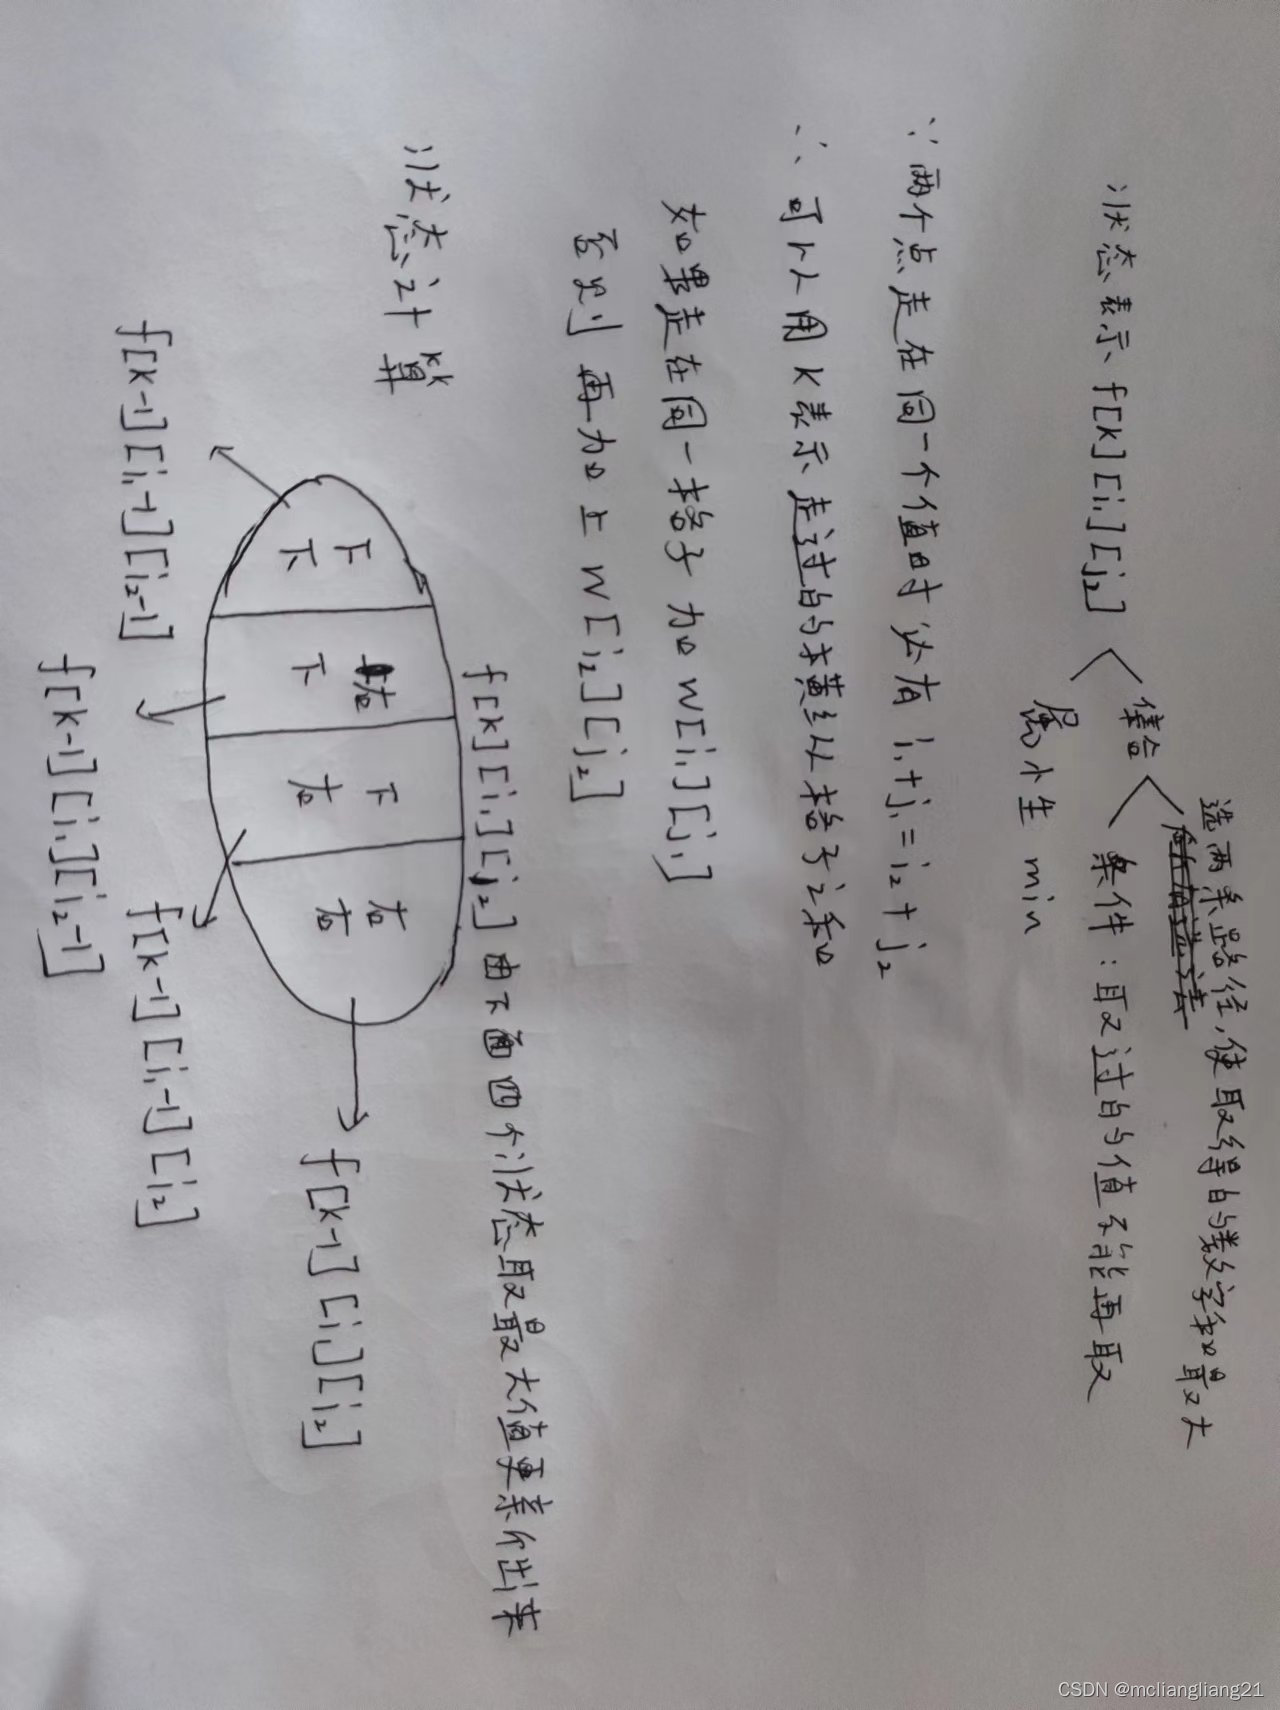 选两条路径,使取得的数字和最大
状态表示 f[k][i₁][j₂]
集合
条件:取过的值不能再取
属性 min
∵两个点走在同一个值时 必有 i₁+j₁=i₂+j₂
∴可以用k表示走过的横纵格子之和
如果走在同一格子 加 w[i₁][j₁]
否则 再加上 w[i₂][j₂]
f[k][i₁][j₂] 由下面四个状态取最大值更新出来
状态计算
下 右 下 右
下 下 右 右
f[k-1][i₁][i₂]
f[k-1][i₁-1][i₂-1]
f[k-1][i₁-1][i₂]
f[k-1][i₁][i₂-1]
CSDN @mcliangliang21